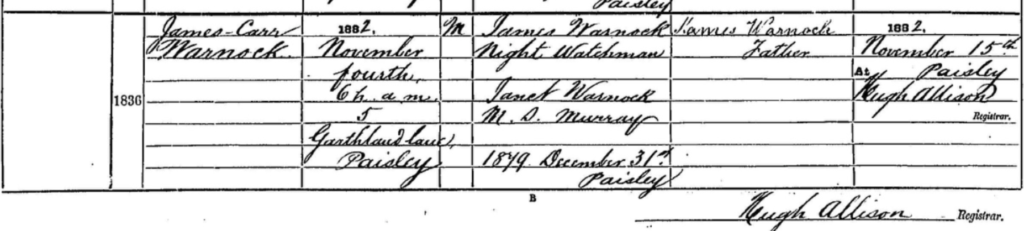 Paisley
1836
James Carr
Warnock
1882.
November
fourth,
6 h. a.m.
5
Garthland Lane,
Paisley
M
James Warnock
Night Watchman
Janet Warnock
M.S. Murray
1879 December 31st
Paisley
James Warnock
Father
1882.
November 15th
At Paisley
Hugh Allison
Registrar.
B
Hugh Allison Registrar.